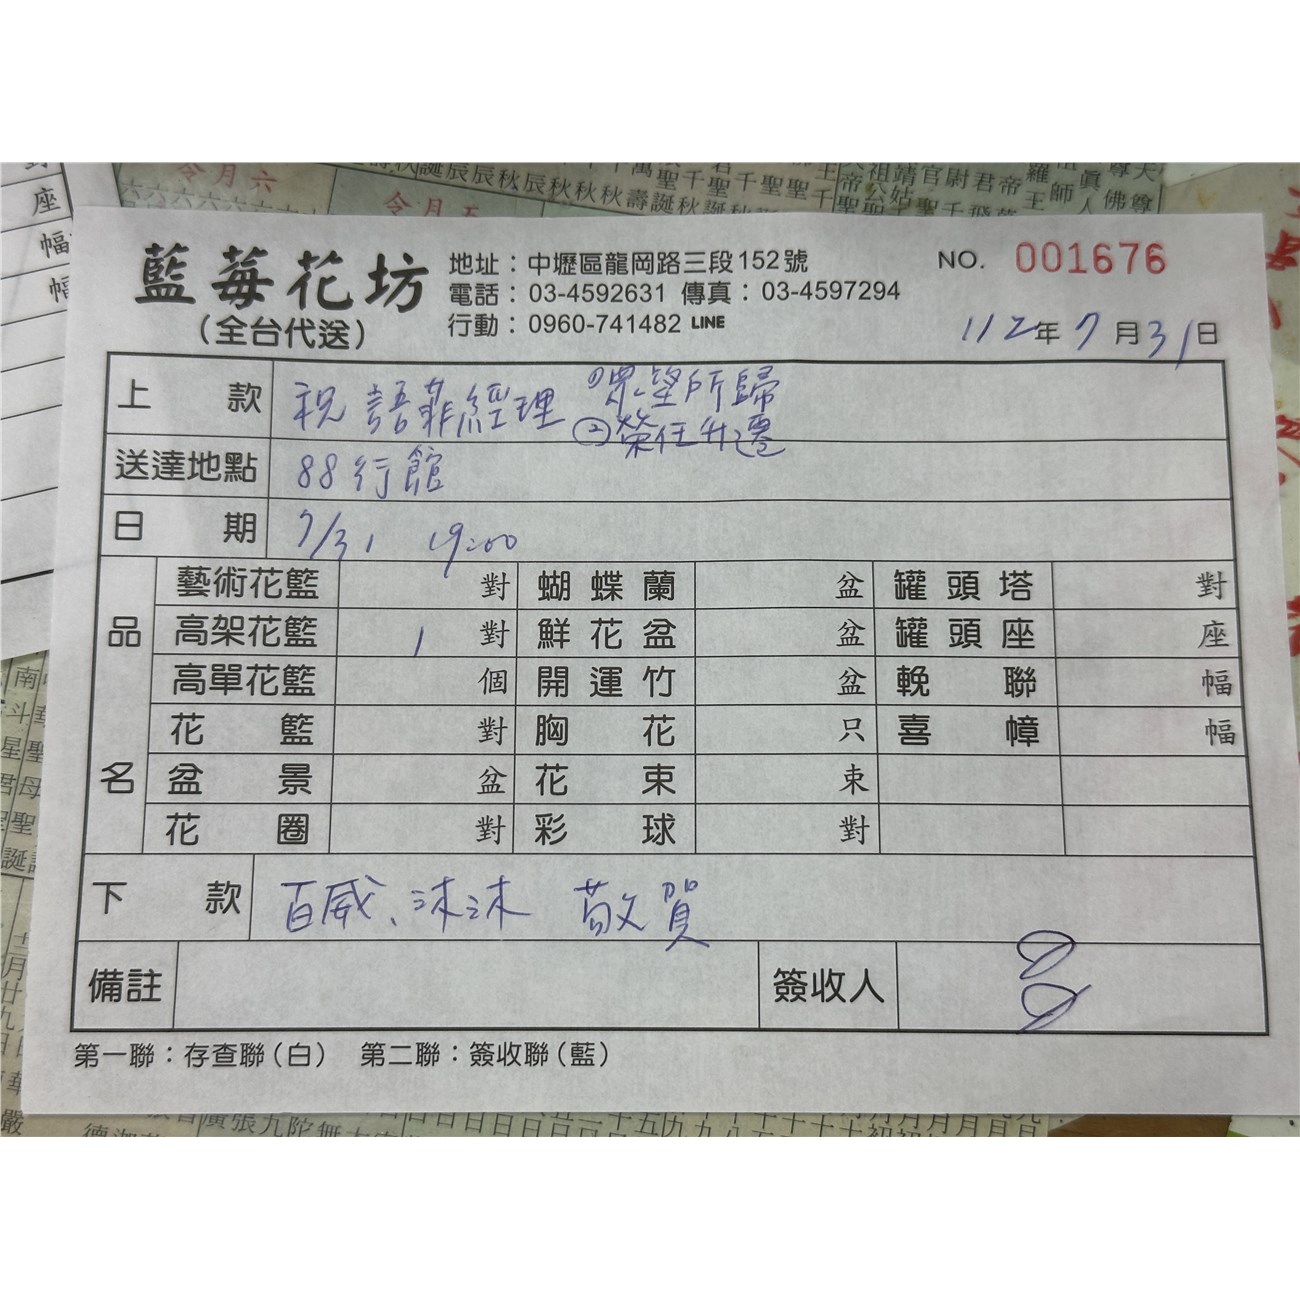 藍莓花坊
(全台代送)
地址：中壢區龍岡路三段152號
電話：03-4592631 傳真：03-4597294
行動：0960-741482 LINE
NO. 001676
112年7月31日
上款 祝 語菲經理 ①眾望所歸
②榮任升遷
送達地點 88行館
日期 7/31 19:00
品名
藝術花籃 對 蝴蝶蘭 盆 罐頭塔 對
高架花籃 1 對 鮮花盆 盆 罐頭座 座
高單花籃 個 開運竹 盆 輓聯 幅
花籃 對 胸花 只 喜幛 幅
盆景 盆 花束 束
花圈 對 彩球 對
下款 百威、沐沐 敬賀
備註 簽收人
第一聯：存查聯(白) 第二聯：簽收聯(藍)